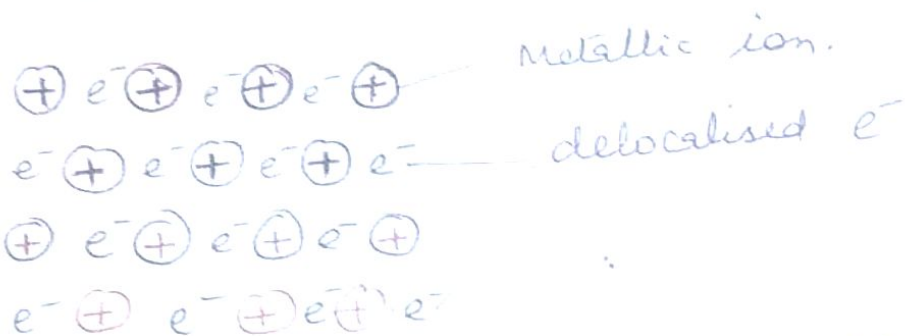 ⊕ e⁻ ⊕ e⁻ ⊕ e⁻ ⊕ Metallic ion.
e⁻ ⊕ e⁻ ⊕ e⁻ ⊕ e⁻ delocalised e⁻
⊕ e⁻ ⊕ e⁻ ⊕ e⁻ ⊕
e⁻ ⊕ e⁻ ⊕ e⁻ ⊕ e⁻